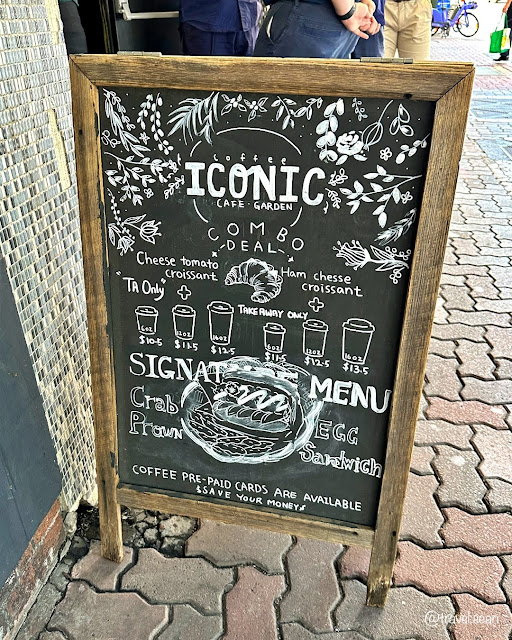 coffee
ICONIC
CAFE · GARDEN
COMBO
DEAL
Cheese tomato
croissant
Ham chesse
croissant
TA Only
+
TAKE AWAY ONLY
+
6OZ
12OZ
16OZ
$10.5
$11.5
$12.5
6OZ
12OZ
16OZ
$11.5
$12.5
$13.5
SIGNAT
MENU
Crab
Prawn
EGG
Sandwich
COFFEE PRE-PAID CARDS ARE AVAILABLE
SAVE YOUR MONEY
@traveleeari